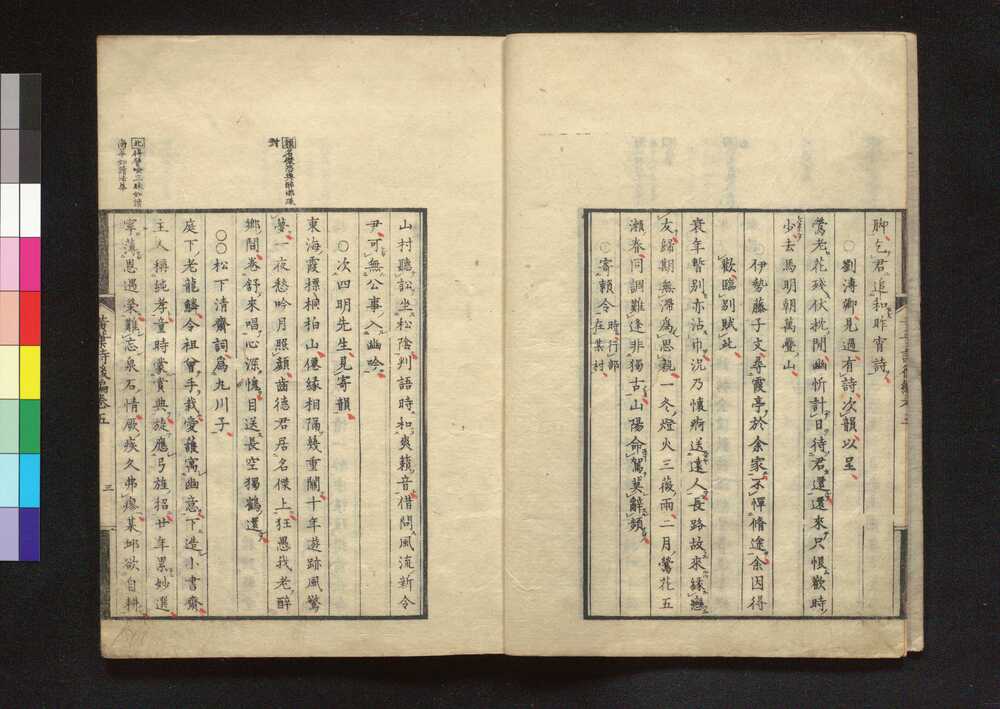 脚乞君追和昨宵詩
○劉溥卿見過有詩次韻以呈
鶯老花残伏枕間幽忻計日待君還還來只恨歡時
少去馬明朝萬疊山
伊勢藤子文尋霞亭於余家不憚脩途余因得
歡臨別賦此
衰年暫別亦沾巾況乃懐痾送遠人長路故來縁戀
友歸期無滞為思親一冬燈火三薇雨二月鶯花五
瀬春同調難逢非獨古山陽命駕莫辭頻
寄頼令 時行部在某村
山村聽訟坐松陰判語時和爽籟音借問風流新令
尹可無公事入幽吟
○次四明先生見寄韻
東海霞標槙柏山僊縁相隔幾重關十年遊跡風驚
夢一夜愁吟月照顔齒德君居名傑上狂愚我老酔
郷間卷舒來唱心深愧目送長空獨鶴還
○○松下清齋詞為九川子
庭下老龍鱗令祖曾手栽愛護寓幽意下造小書齋
主人稱純孝童時蒙賞典旋應弓旌招廿年累妙選
寧薄恩遇榮難忘泉石情厥疾久弗瘳某邱欲自耕
黄葉詩後編卷五
三